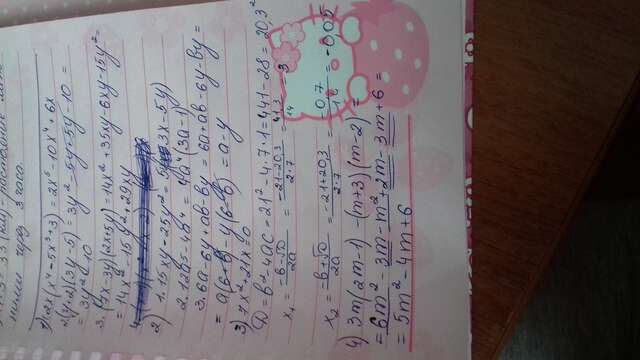 ными через 3 часа.
1) 1. 2x(x⁴-5x³+3) = 2x⁵-10x⁴+6x
2. (y+2)(3y-5) = 3y²-5y+5y-10 =
= 3y²-10
3. (7x-3y)(2x+5y) = 14x² + 35xy-6xy-15y² =
= 14x²-15y²+29xy
2) 1. 15xy-25y² = 5y(3x-5y)
2. 12a5-4a⁴ = 4a⁴(3a-1)
3. 6a-6y+ab-by = 6a+ab-6y-by =
= a(6+b)-y(6-b) = a-y
3) 7x²+21x=0
D = b²-4ac = 21²-4·7·1 = 441-28 = 20,3²
x₁ = -b-√D/2a = -21-20,3/2·7 = 41,3/14 = 3
x₂ = -b+√D/2a = -21+20,3/2·7 = -0,7/14 = -0,05
4) 3m(2m-1) -(m+3)(m-2) =
= 6m²-3m-m²+2m-3m+6 =
= 5m²-4m+6